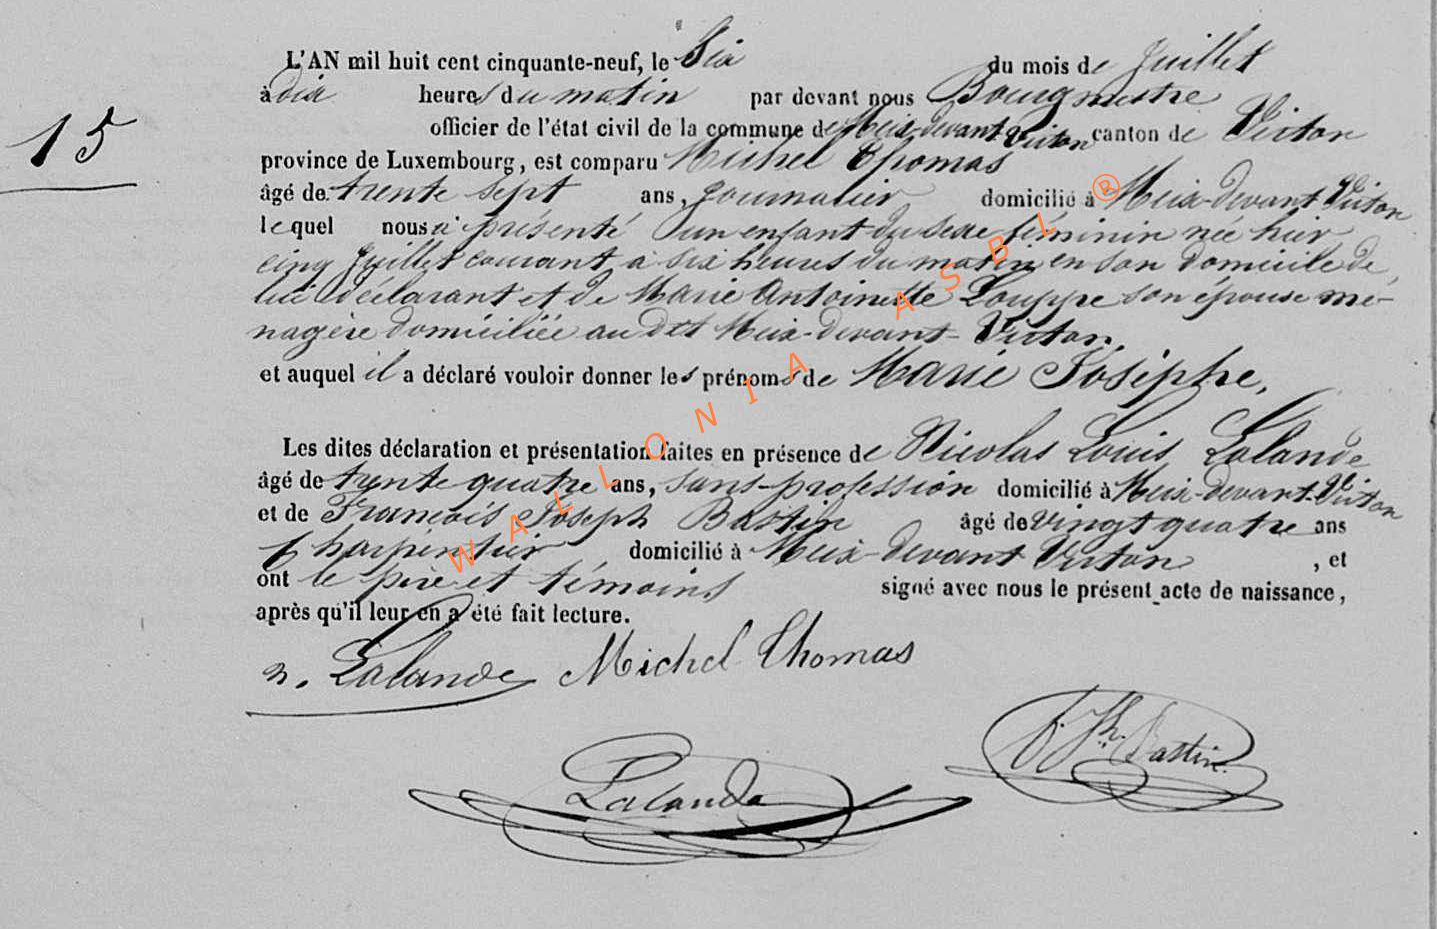 L'AN mil huit cent cinquante-neuf, le Six du mois de Juillet
à dix heures du matin par devant nous Bourgmestre
15
officier de l'état civil de la commune de Meix-devant Virton canton de Virton
province de Luxembourg, est comparu Michel Thomas
âgé de trente sept ans, journalier domicilié à Meix-devant Virton
lequel nous a présenté un enfant du sexe féminin née hier
cinq Juillet courant à six heures du matin en son domicile de
lui déclarant et de Marie Antoinette Louppe son épouse mé-
nagère domiciliée au dit Meix-devant-Virton,
et auquel il a déclaré vouloir donner les prénoms de Marie Josèphe,
Les dites déclaration et présentation faites en présence de Nicolas Louis Lalande
âgé de trente quatre ans, sans-profession domicilié à Meix-devant-Virton
et de François Joseph Bastin âgé de vingt quatre ans
Charpentier domicilié à Meix-devant Virton , et
ont le père et témoins signé avec nous le présent acte de naissance,
après qu'il leur en a été fait lecture.
n. Lalande Michel Thomas
f. Jh. Bastin
Lalande
WALLONIA ASBL ®